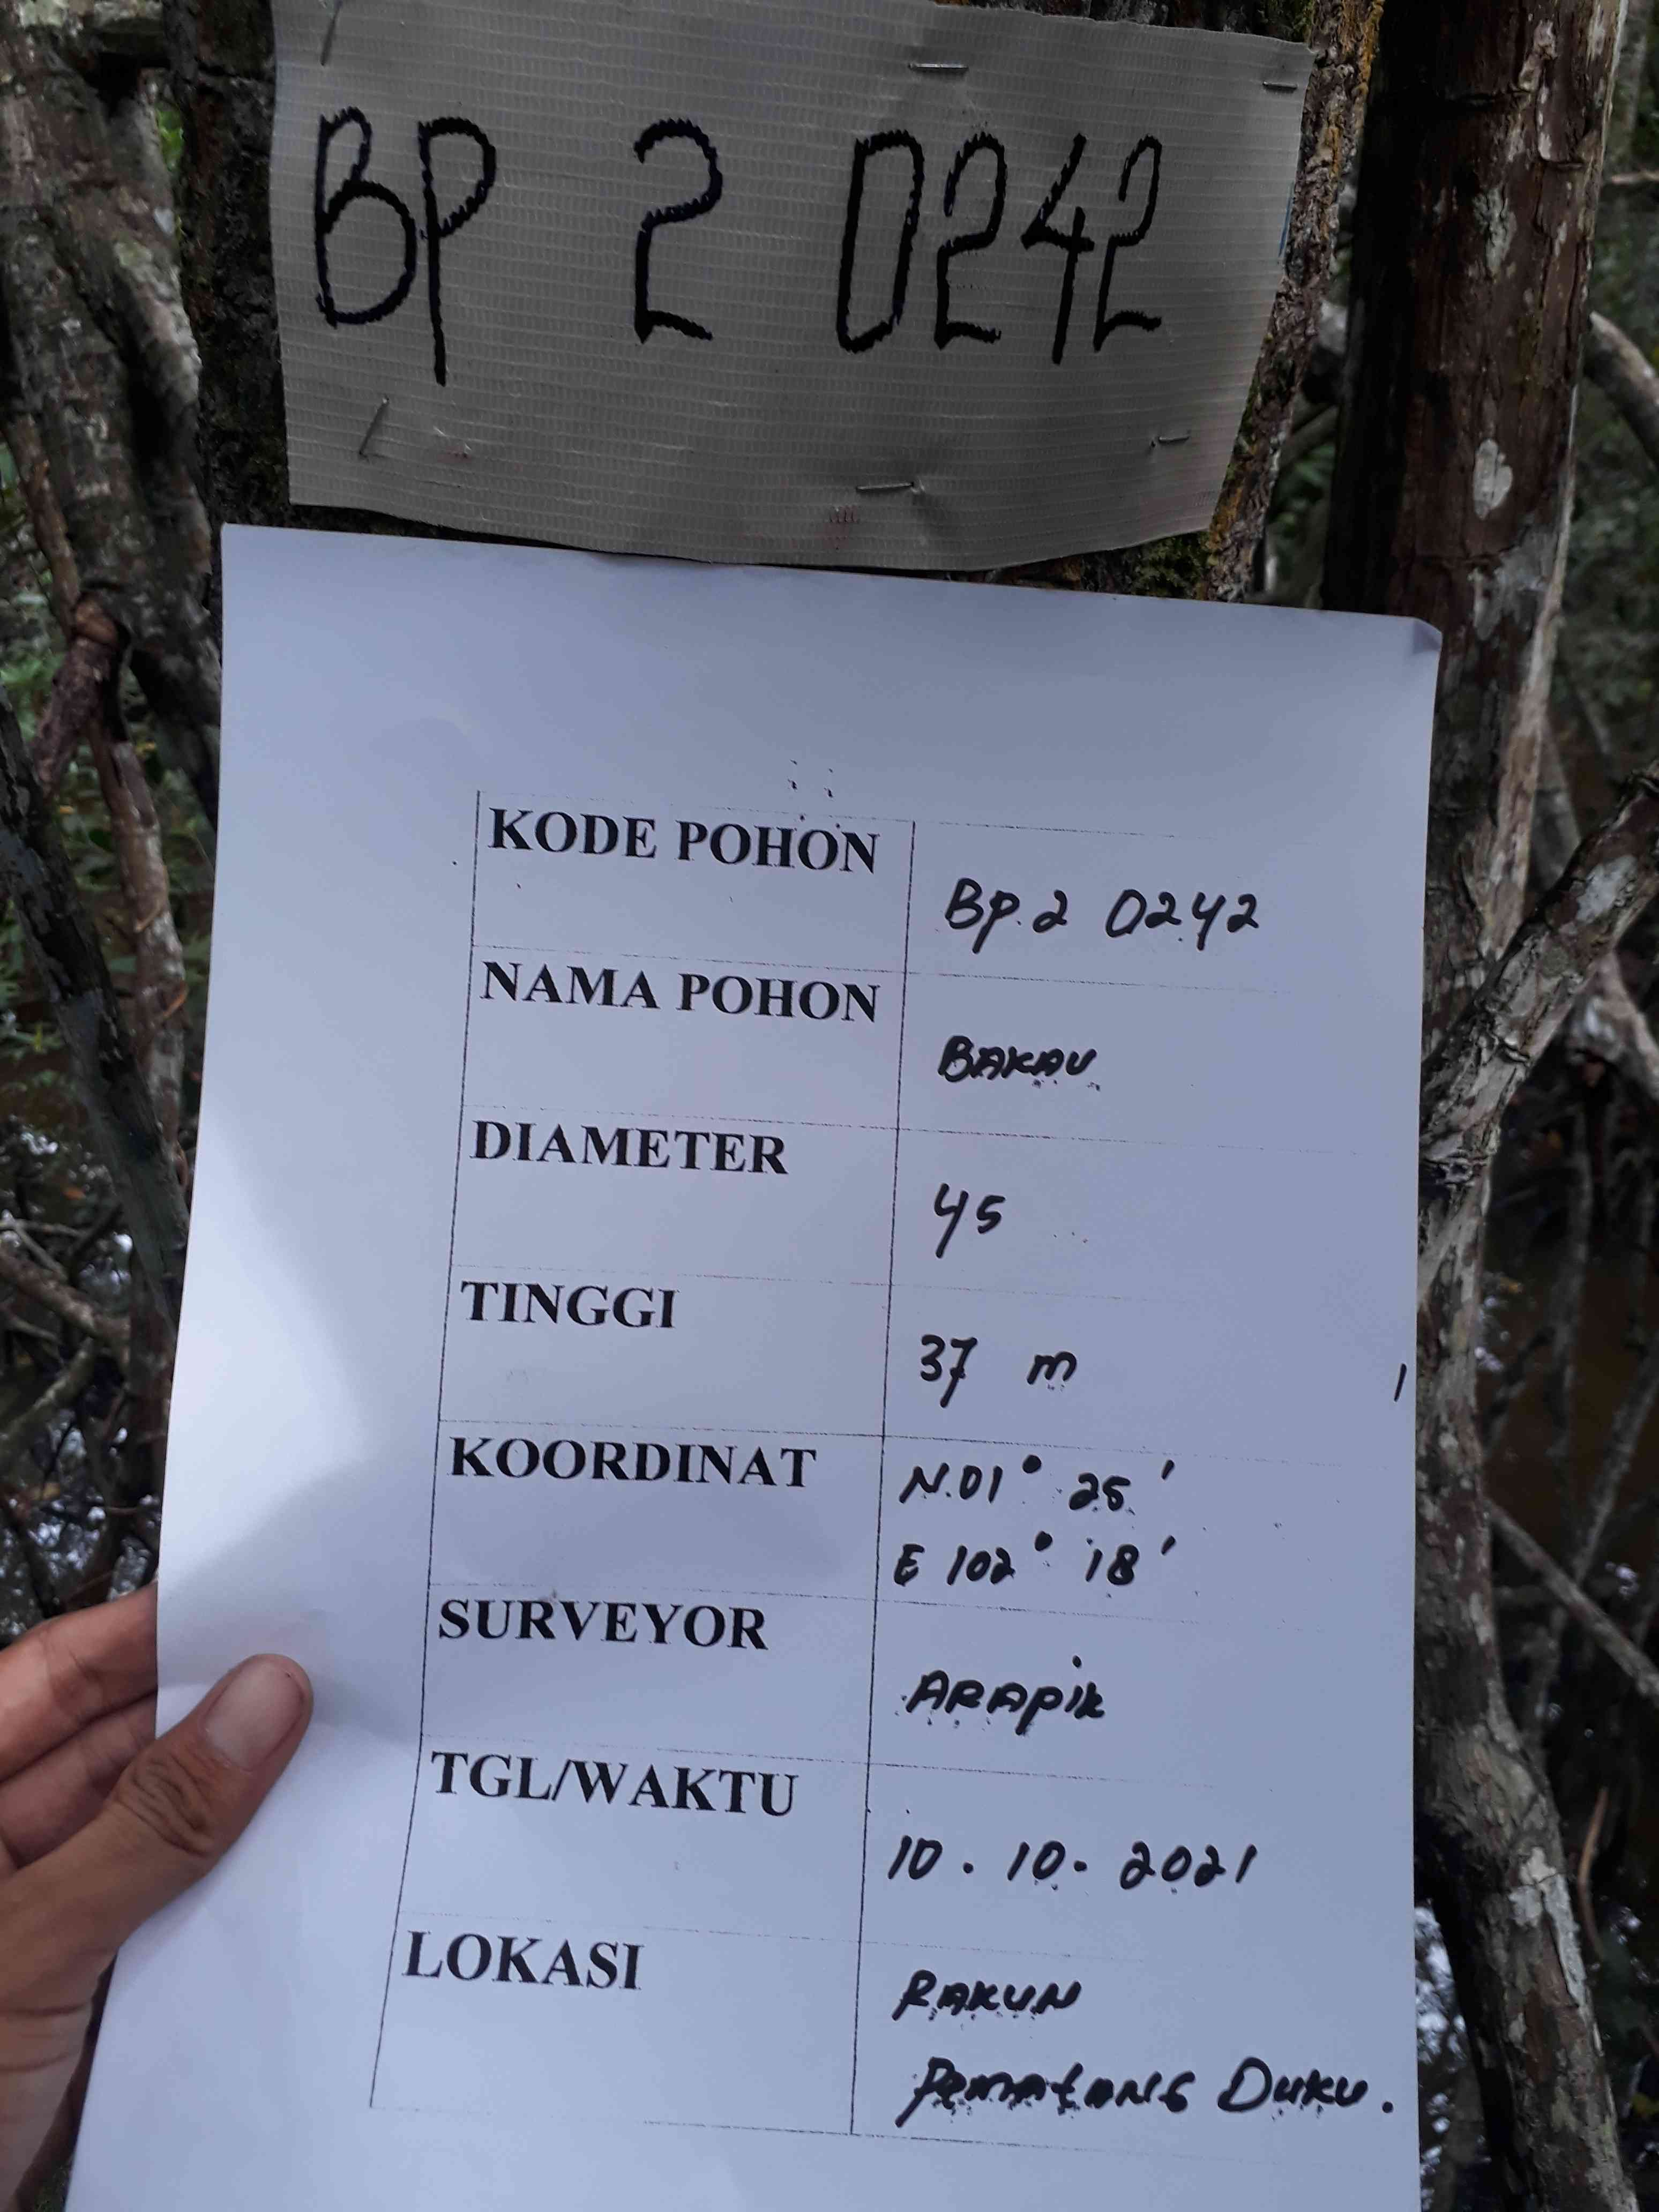 BP 2 0242
KODE POHON
BP.2 0242
NAMA POHON
BAKAU
DIAMETER
45
TINGGI
37 m
KOORDINAT
N.01° 25'
E 102° 18'
SURVEYOR
ARAPIK
TGL/WAKTU
10.10.2021
LOKASI
RAKUN
Pematang Duku.